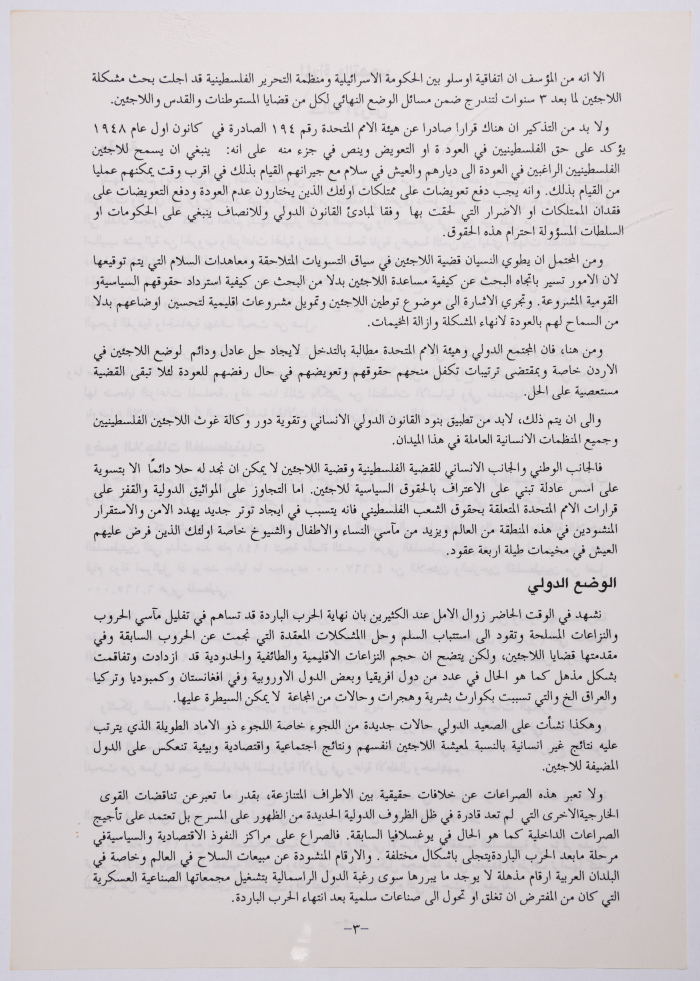 الا انه من المؤسف ان اتفاقية اوسلو بين الحكومة الاسرائيلية ومنظمة التحرير الفلسطينية قد اجلت بحث مشكلة
اللاجئين لما بعد ٣ سنوات لتندرج ضمن مسائل الوضع النهائي لكل من قضايا المستوطنات والقدس واللاجئين.
ولا بد من التذكير ان هناك قرارا صادرا عن هيئة الامم المتحدة رقم ١٩٤ الصادرة في كانون اول عام ١٩٤٨
يؤكد على حق الفلسطينيين في العودة او التعويض وينص في جزء منه على انه: ينبغي ان يسمح للاجئين
الفلسطينيين الراغبين في العودة الى ديارهم والعيش في سلام مع جيرانهم القيام بذلك في اقرب وقت يمكنهم عمليا
من القيام بذلك. وانه يجب دفع تعويضات على ممتلكات اولئك الذين يختارون عدم العودة ودفع التعويضات على
فقدان الممتلكات او الاضرار التي لحقت بها وفقا لمبادئ القانون الدولي وللانصاف ينبغي على الحكومات او
السلطات المسؤولة احترام هذه الحقوق.
ومن المحتمل ان يطوي النسيان قضية اللاجئين في سياق التسويات المتلاحقة ومعاهدات السلام التي يتم توقيعها
لان الامور تسير باتجاه البحث عن كيفية مساعدة اللاجئين بدلا من البحث عن كيفية استرداد حقوقهم السياسيةو
القومية المشروعة. وتجري الاشارة الى موضوع توطين اللاجئين وتمويل مشروعات اقليمية لتحسين اوضاعهم بدلا
من السماح لهم بالعودة لانهاء المشكلة وازالة المخيمات.
ومن هنا، فان المجتمع الدولي وهيئة الامم المتحدة مطالبة بالتدخل لايجاد حل عادل ودائم لوضع اللاجئين في
الاردن خاصة وبمقتضى ترتيبات تكفل منحهم حقوقهم وتعويضهم في حال رفضهم للعودة لئلا تبقى القضية
مستعصية على الحل.
والى ان يتم ذلك، لابد من تطبيق بنود القانون الدولي الانساني وتقوية دور وكالة غوث اللاجئين الفلسطينيين
وجميع المنظمات الانسانية العاملة في هذا الميدان.
فالجانب الوطني والجانب الانساني للقضية الفلسطينية وقضية اللاجئين لا يمكن ان نجد له حلا دائمًا الا بتسوية
على اسس عادلة تبني على الاعتراف بالحقوق السياسية للاجئين. اما التجاوز على المواثيق الدولية والقفز على
قرارات الامم المتحدة المتعلقة بحقوق الشعب الفلسطيني فانه يتسبب في ايجاد توتر جديد يهدد الامن والاستقرار
المنشودين في هذه المنطقة من العالم ويزيد من مآسي النساء والاطفال والشيوخ خاصة اولئك الذين فرض عليهم
العيش في مخيمات طيلة اربعة عقود.
الوضع الدولي
نشهد في الوقت الحاضر زوال الامل عند الكثيرين بان نهاية الحرب الباردة قد تساهم في تقليل مآسي الحروب
والنزاعات المسلحة وتقود الى استتباب السلم وحل االمشكلات المعقدة التي نجمت عن الحروب السابقة وفي
مقدمتها قضايا اللاجئين، ولكن يتضح ان حجم النزاعات الاقليمية والطائفية والحدودية قد ازدادت وتفاقمت
بشكل مذهل كما هو الحال في عدد من دول افريقيا وبعض الدول الاوروبية وفي افغانستان وكمبوديا وتركيا
والعراق الخ والتي تسببت بكوارث بشرية وهجرات وحالات من المجاعة لا يمكن السيطرة عليها.
وهكذا نشأت على الصعيد الدولي حالات جديدة من اللجوء خاصة اللجوء ذو الاماد الطويلة الذي يترتب
عليه نتائج غير انسانية بالنسبة لمعيشة اللاجئين انفسهم ونتائج اجتماعية واقتصادية وبيئية تنعكس على الدول
المضيفة للاجئين.
ولا تعبر هذه الصراعات عن خلافات حقيقية بين الاطراف المتنازعة، بقدر ما تعبرعن تناقضات القوى
الخارجيةالاخرى التي لم تعد قادرة في ظل الظروف الدولية الجديدة من الظهور على المسرح بل تعتمد على تأجيج
الصراعات الداخلية كما هو الحال في يوغسلافيا السابقة. فالصراع على مراكز النفوذ الاقتصادية والسياسيةفي
مرحلة مابعد الحرب الباردةيتجلى باشكال مختلفة . والارقام المنشودة عن مبيعات السلاح في العالم وخاصة في
البلدان العربية ارقام مذهلة لا يوجد ما يبررها سوى رغبة الدول الراسمالية بتشغيل مجمعاتها الصناعية العسكرية
التي كان من المفترض ان تغلق او تحول الى صناعات سلمية بعد انتهاء الحرب الباردة.
–٣–